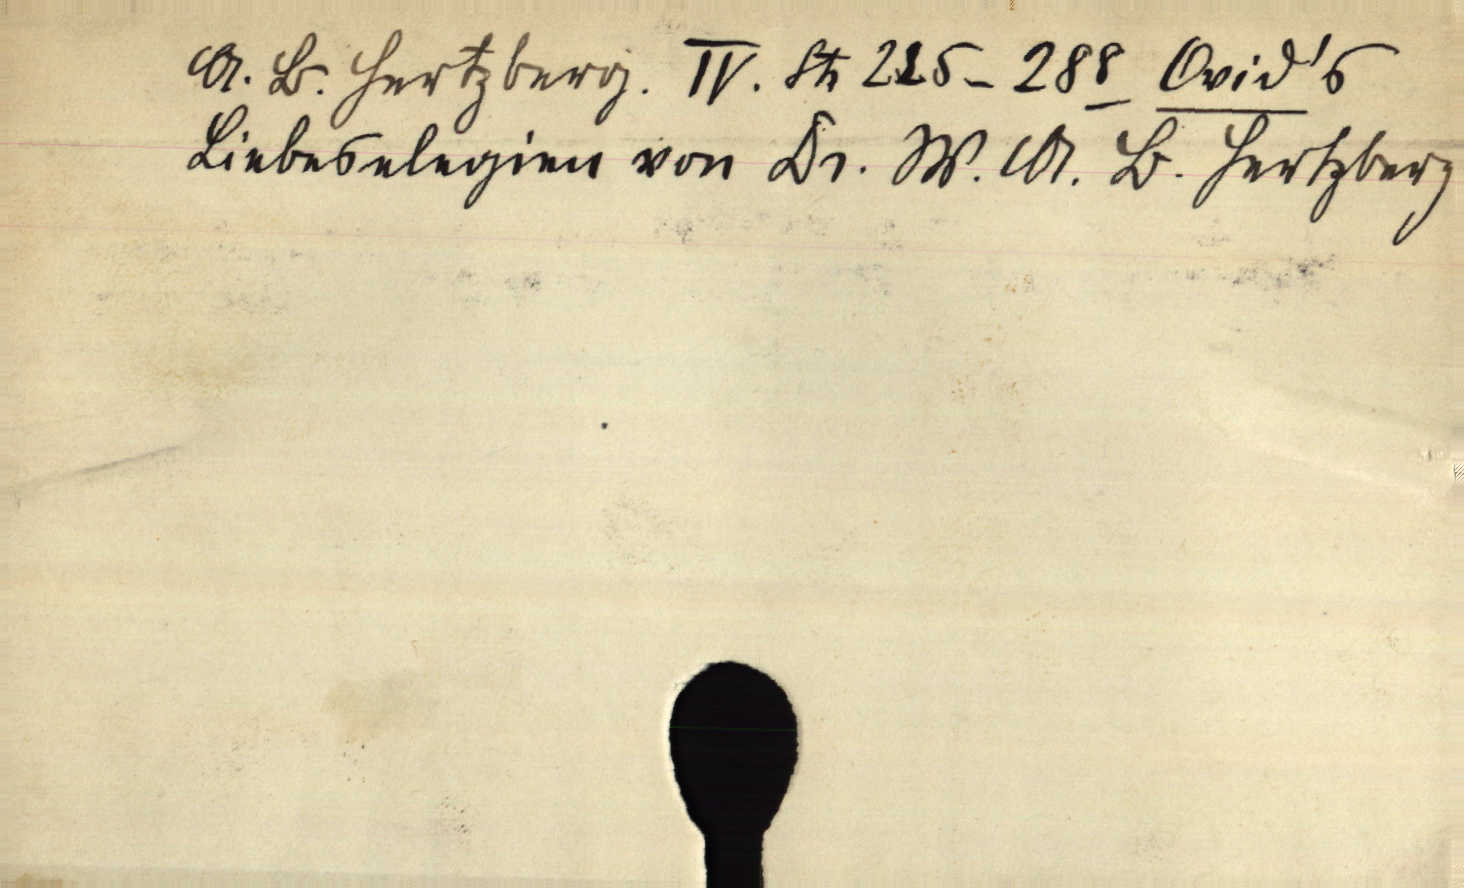 A. B. Hertzberg. IV. St 225 - 288 Ovid's
Liebeselegien von Dr. W. A. B. Hertzberg